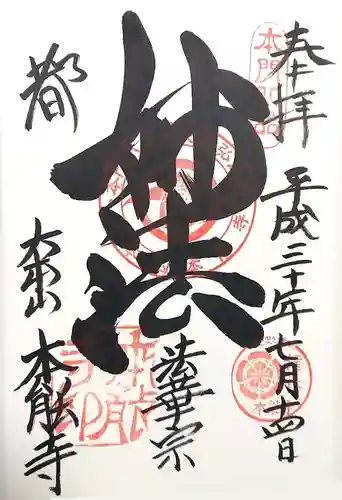 奉拝
平成三十年七月十四日
妙法
法華宗
都
大本山
本能寺